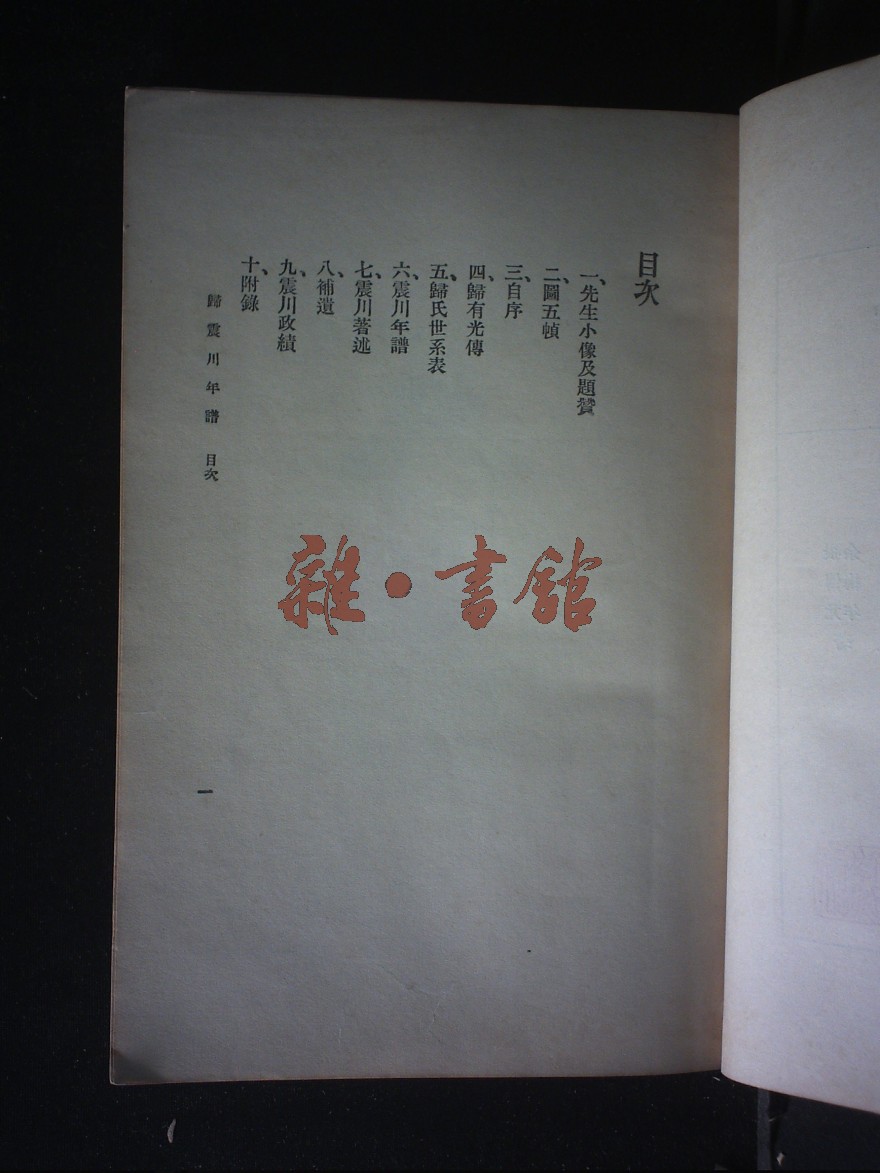 目次
一、先生小像及題贊
二、圖五幀
三、自序
四、歸有光傳
五、歸氏世系表
六、震川年譜
七、震川著述
八、補遺
九、震川政績
十、附錄
歸震川年譜 目次
一
雜·書館